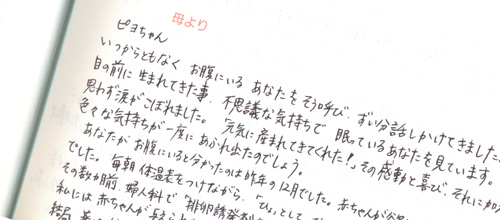 母より
ピヨちゃん
いつからともなく お腹にいる あなたをそう呼び、ずい分話しかけてきました。
目の前に 生まれてきた事、不思議な気持ちで 眠っているあなたを見ています。
思わず涙がこぼれました。 元気に産まれてきてくれた!」その感動と喜び、それに
色々な気持ちが一度に あふれ出たのでしょう。
あなたが お腹にいると分かったのは昨年の12月でした。赤ちゃんが
でした。毎朝 体温表をつけながら、
その数カ前、婦人科で「排卵誘発剤
私には赤ちゃんが
結局